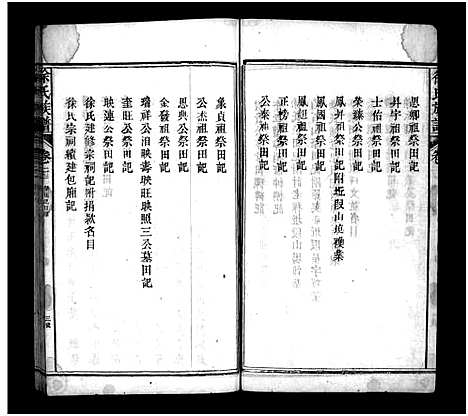 恩卿祖祭田記
昇宇祖祭田記
士佑祖祭田記
榮臻公祭田記
鳳昇祖祭田記附坵段山塲襍業
鳳岡祖祭田記
正榜祖祭田記
公泰祖祭田記
集貞祖祭田記
公杰祖祭田記
恩典公祭田記
金發祖祭田記
瓚祥公洎映壽映旺映照三公墓田記
奎旺公祭田記
映連公祭田記
徐氏建修宗祠記附捐欵名目
徐氏宗祠續建包廂記
徐氏族譜
卷